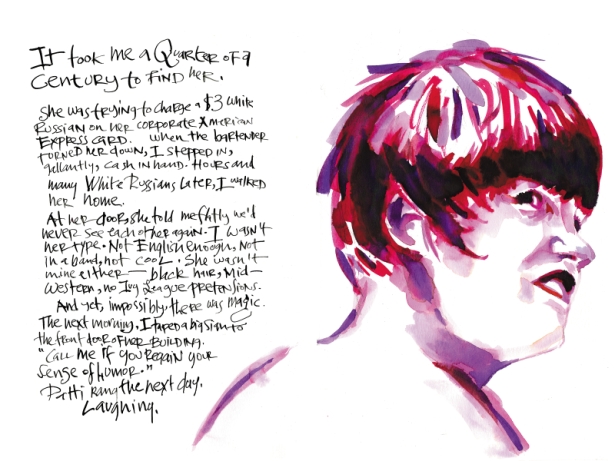 It took me a Quarter of a
Century to Find her.
She was trying to charge a $3 White
Russian on her corporate American
Express card. When the bartender
turned her down, I stepped in,
gallantly, cash in hand. Hours and
many White Russians later, I walked
her home.
At her door, she told me flatly we'd
never see each other again. I wasn't
her type. Not English enough, not
in a band, not cool. She wasn't
mine either — black hair, Mid-
western, no Ivy League pretensions.
And yet, impossibly, there was magic.
The next morning, I taped a big sign to
the front door of her building.
"Call me if you regain your
sense of humor."
Patti rang the next day.
Laughing.